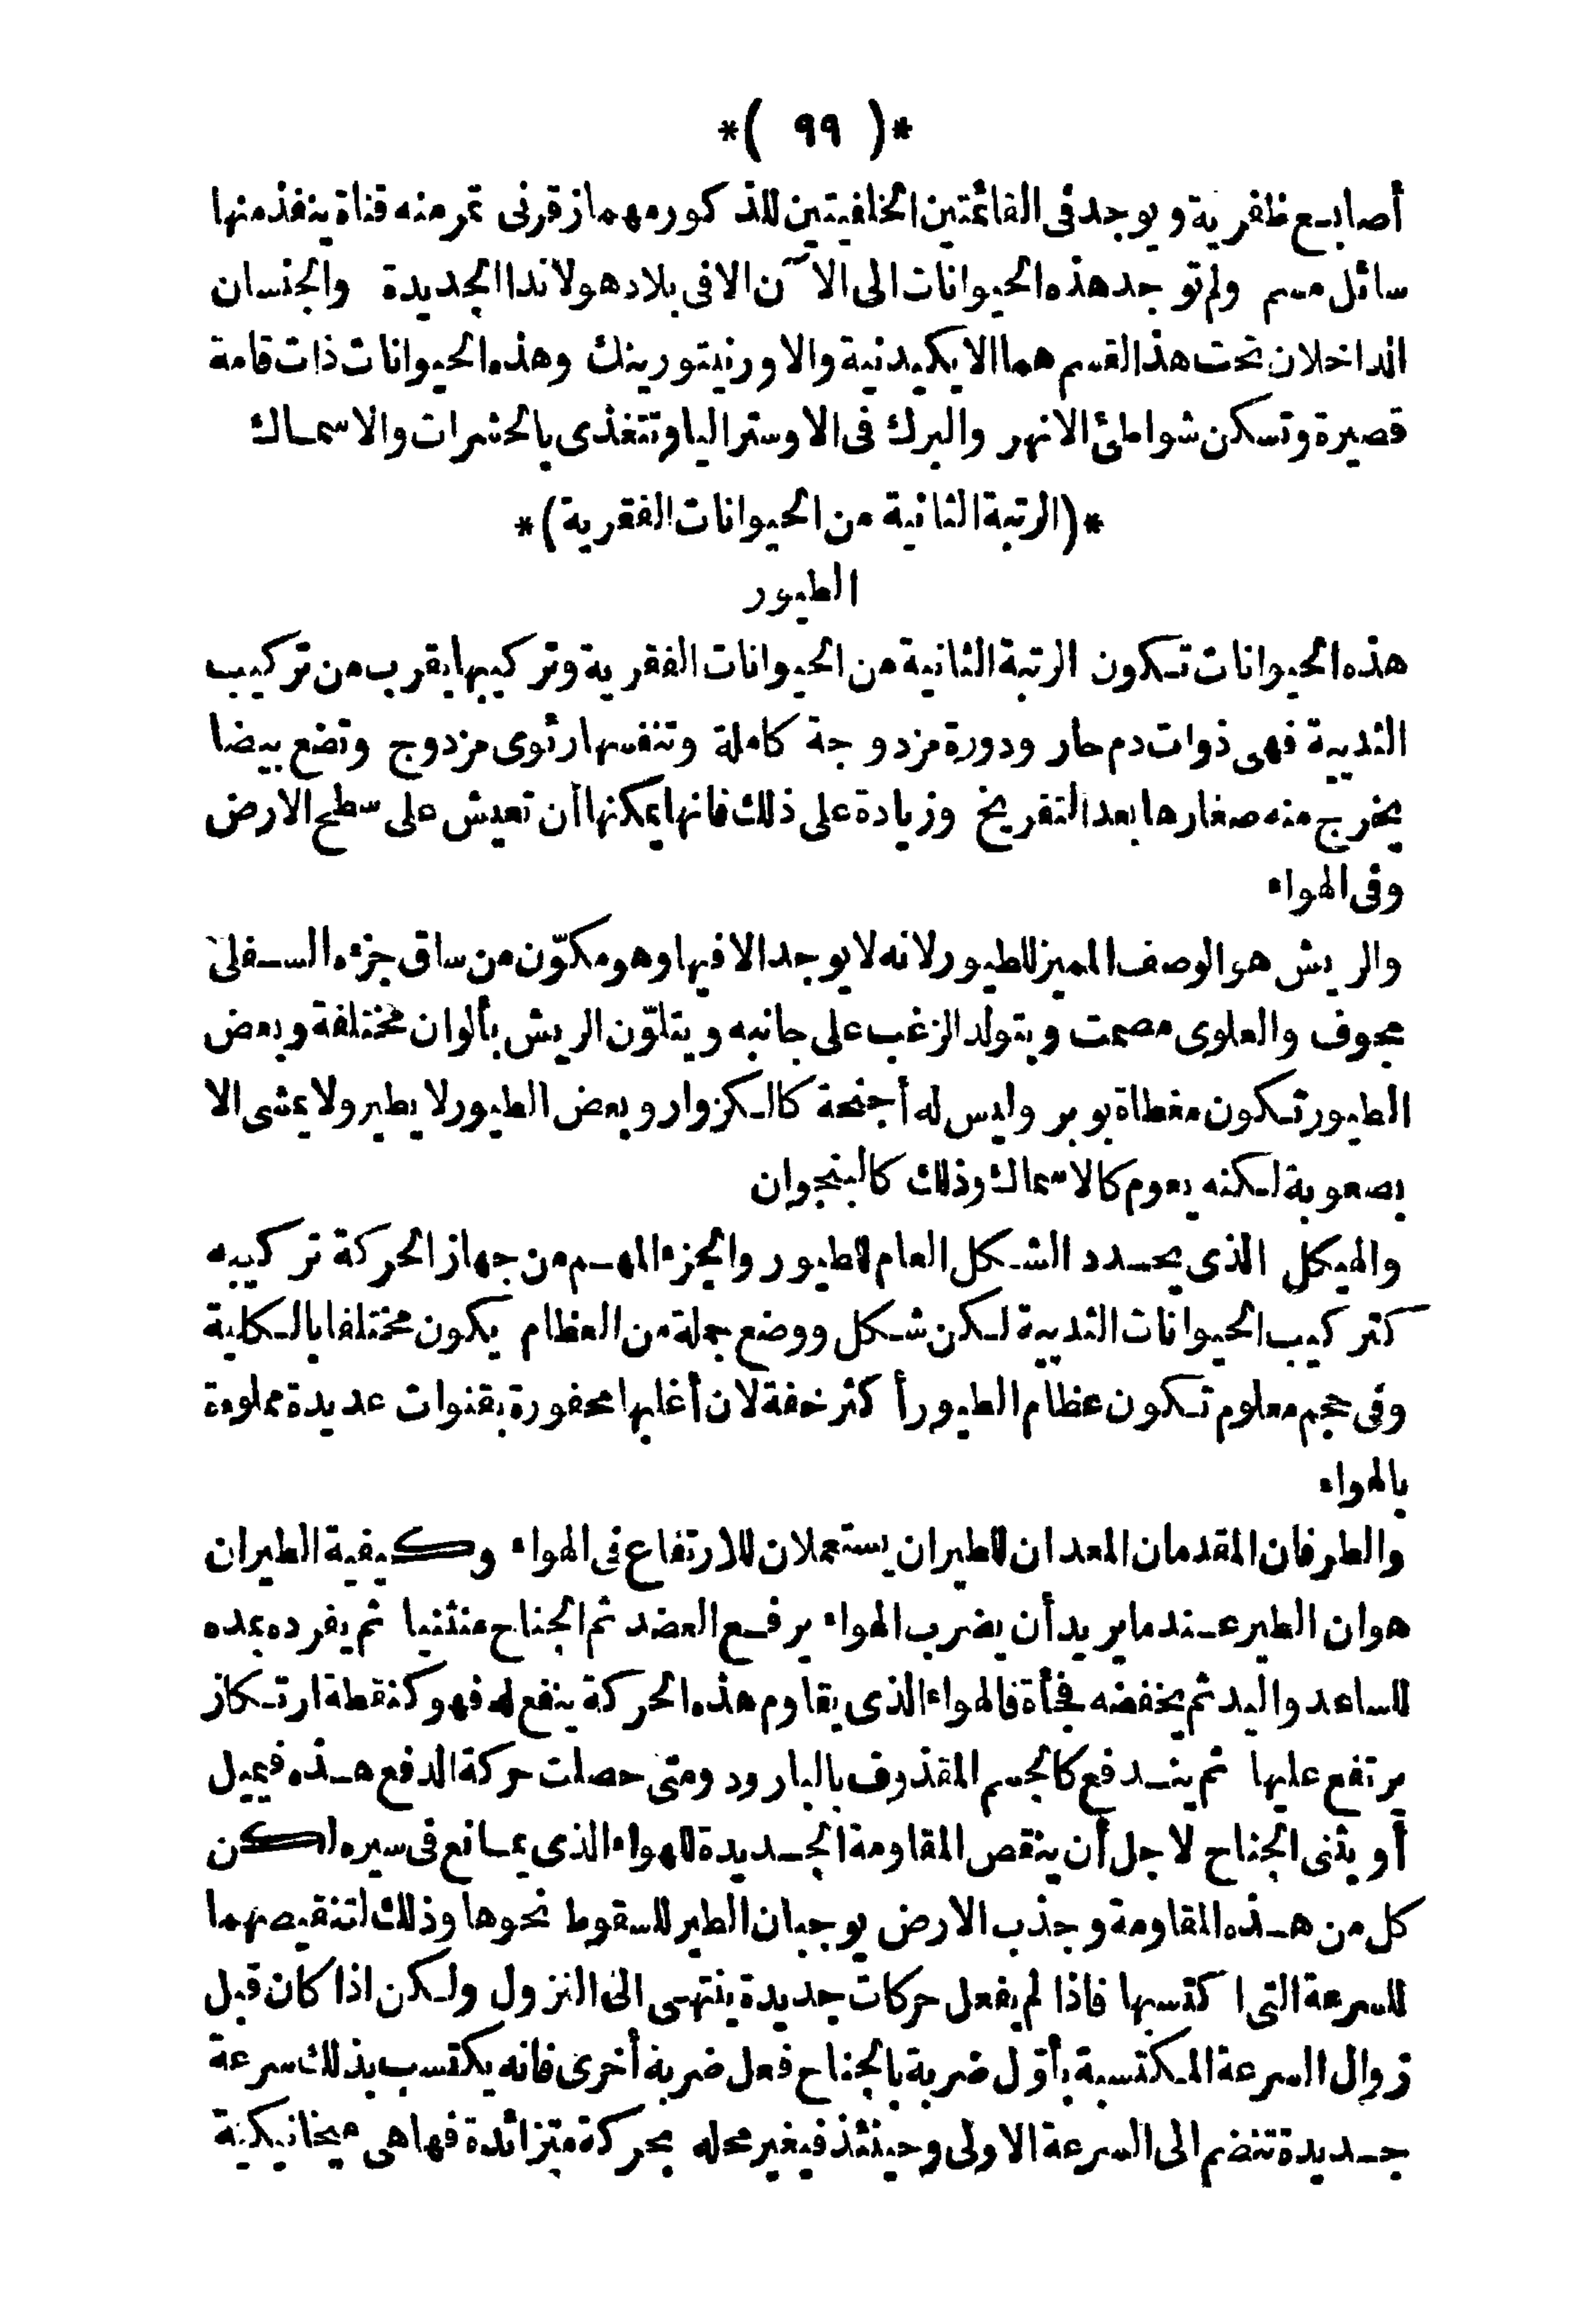 *( ٩٩ )*
أصابع ظفرية ويوجد فى القائمتين الخلفيتين للذكور مهماز قرنى تمر منه قناة ينفذ منها
سائل مسم ولم توجد هذه الحيوانات الى الآن الا فى بلاد هولاندا الجديدة والجنسان
الداخلان تحت هذا القسم هما الايكيدنية والاورنيتورينك وهذه الحيوانات ذات قامة
قصيرة وتسكن شواطئ الانهر والبرك فى الاوستراليا وتتغذى بالحشرات والاسماك
*(الرتبة الثانية من الحيوانات الفقرية)*
الطيور
هذه الحيوانات تكون الرتبة الثانية من الحيوانات الفقرية وتركيبها يقرب من تركيب
الثديية فهى ذوات دم حار ودورة مزدوجة كاملة وتنفسها رئوى مزدوج وتضع بيضا
يخرج منه صغارها بعد التفريخ وزيادة على ذلك فانها يمكنها أن تعيش على سطح الارض
وفى الهواء
والريش هو الوصف المميز للطيور لانه لا يوجد الا فيها وهو مكوّن من ساق جزءه السفلى
مجوف والعلوى مصمت ويتولد الزغب على جانبه ويتلوّن الريش بألوان مختلفة وبعض
الطيور تكون مغطاة بوبر وليس له أجنحة كالكزوار وبعض الطيور لا يطير ولا يمشى الا
بصعوبة لكنه يعوم كالاسماك وذلك كالبنجوان
والهيكل الذى يحدد الشكل العام للطيور والجزء المهم من جهاز الحركة تركيبه
كتركيب الحيوانات الثديية لكن شكل ووضع جملة من العظام يكون مختلفا بالكلية
وفى حجم معلوم تكون عظام الطيور أكثر خفة لان أغلبها محفورة بقنوات عديدة مملوءة
بالهواء
والطرفان المقدمان المعدان للطيران يستعملان للارتفاع فى الهواء وكيفية الطيران
هو ان الطير عندما يريد أن يضرب الهواء يرفع العضد ثم الجناح منثنيا ثم يفرده بمده
للساعد واليد ثم يخفضه فجأة فالهواء الذى يقاوم هذه الحركة ينفع له فهو كنقطة ارتكاز
يرتفع عليها ثم يندفع كالجسم المقذوف بالبارود ومتى حصلت حركة الدفع هذه فيميل
أو يثنى الجناح لاجل أن ينقص المقاومة الجديدة للهواء الذى يمانع فى سيره لكن
كل من هذه المقاومة وجذب الارض يوجبان الطير للسقوط نحوها وذلك لتنقيصهما
للسرعة التى اكتسبها فاذا لم يفعل حركات جديدة ينتهى الى النزول ولكن اذا كان قبل
زوال السرعة المكتسبة بأوّل ضربة بالجناح فعل ضربة أخرى فانه يكتسب بذلك سرعة
جديدة تنضم الى السرعة الاولى وحينئذ فيغير محله بحركة متزائدة فها هى ميخانيكية